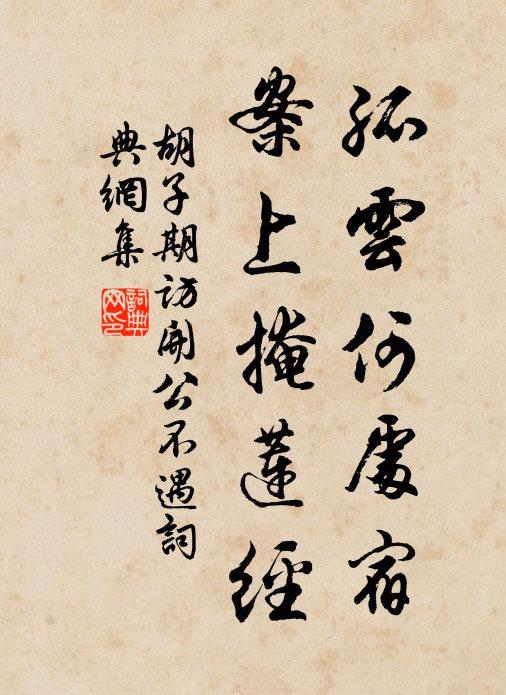 孤雲何處宿
案上掩蓮經
胡子期訪開公不遇詞
典網集
詞典網印